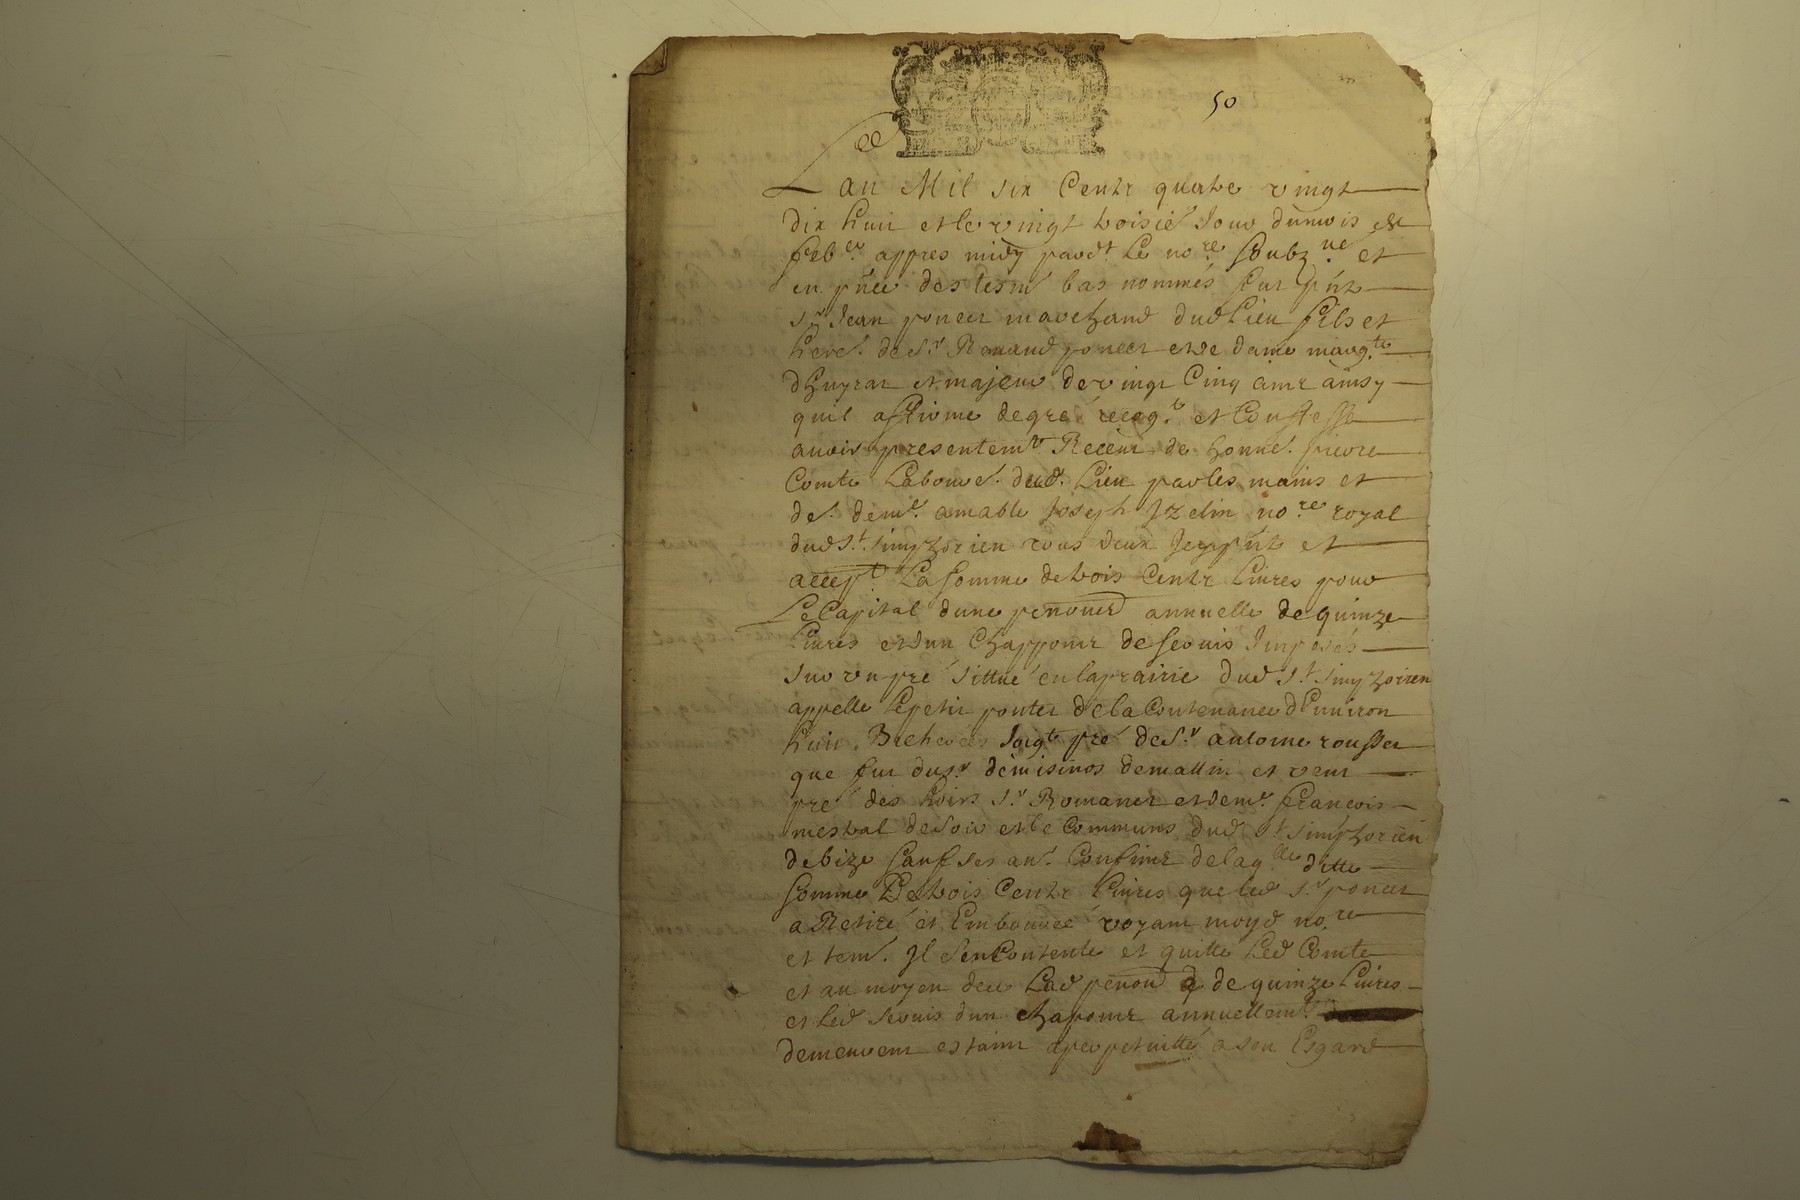 50
Lan Mil six Centz quatre vingt
dix huit et le vingt troisie Jour du mois de
feb.er appres midy pardt Le no.re soubz.ne et
en pñce des tesm bas nommés fut pñt
S.r Jean poncet marchand dud Lieu fils et
here. de S.r Renaud poncet et de dame marg.te
et majeur de vingt Cinq ans ainsy
quil affirme de gre et Confesse
avoir presentem.t Receu de honne. pierre
Comte Laboure. dud. Lieu par les mains et
de. dem.e amable Joseph Jzelin no.re royal
dud S.t Simphorien tous deux Jcy pñt et
accept La somme de trois Centz Livres pour
Le Capital dune annuelle de quinze
Livres et dun Chappont de servis Jmposés
sur un pré sittué en la prairie dud S.t Simphorien
appelle Le petit de la Contenance d'Environ
huit pré de S.r antoine rousset
que fut du s.r de mattin et vent
pré des hoirs S.r Romanet et dem.e francois
mestral de soir et le Communs dud S.t Simphorien
de bize sauf ses au. Confinz de laq.lle ditte
somme De trois Centz Livres que led S.r poncet
a Retiré et Emboursé voyant moyd no.re
et tem. Jl sen Contente et quitte Led Comte
et au moyen de ce Lad de quinze Livres
et Led servis dun chapont annuellem.t
demeurent estaint a perpetuitté a son Esgard